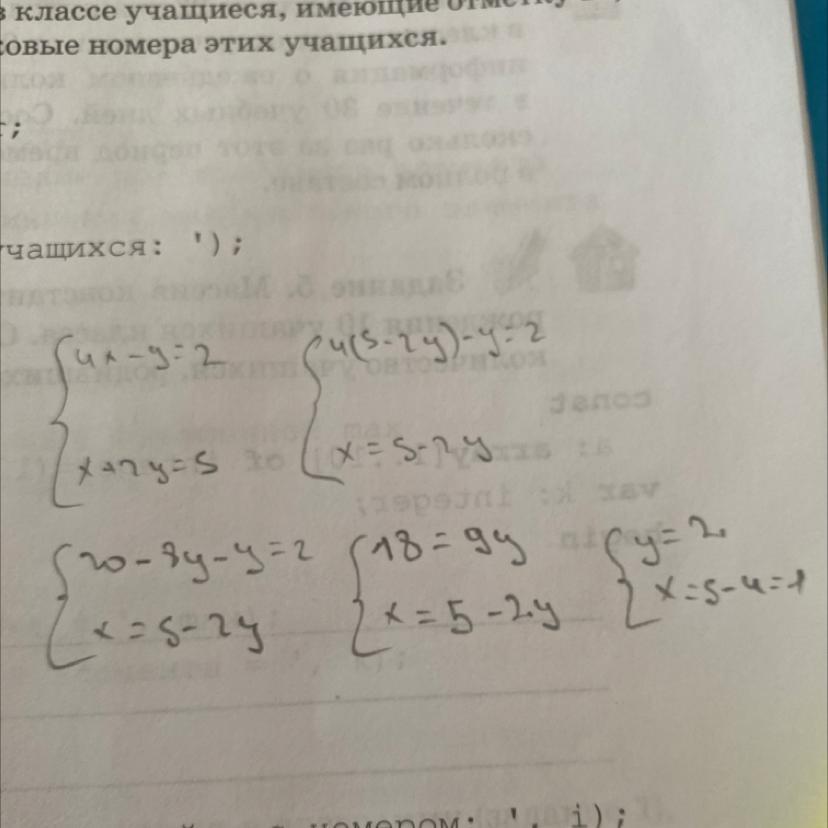 в классе учащиеся, имеющие
овые номера этих учащихся.
учащихся: ');
4x - y = 2
x + 2y = 5
4(5 - 2y) - y = 2
x = 5 - 2y
20 - 8y - y = 2
x = 5 - 2y
18 = 9y
x = 5 - 2y
y = 2
x = 5 - 4 = 1
номером: ', i);